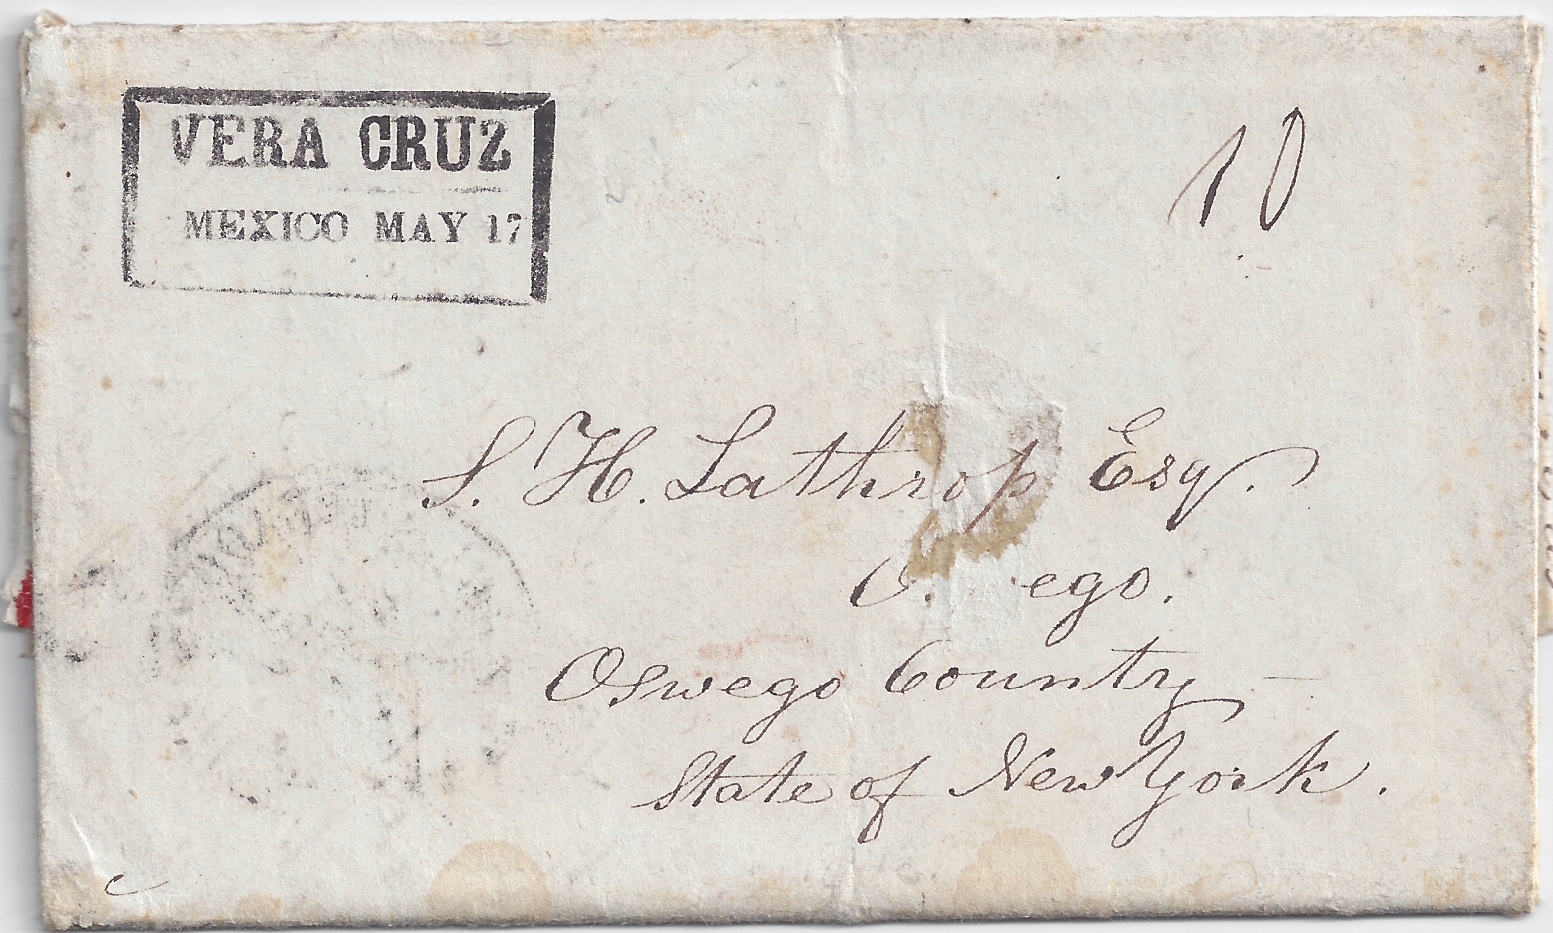 VERA CRUZ
MEXICO MAY 17
10
S. H. Lathrop Esqr.
Oswego County
State of New York.